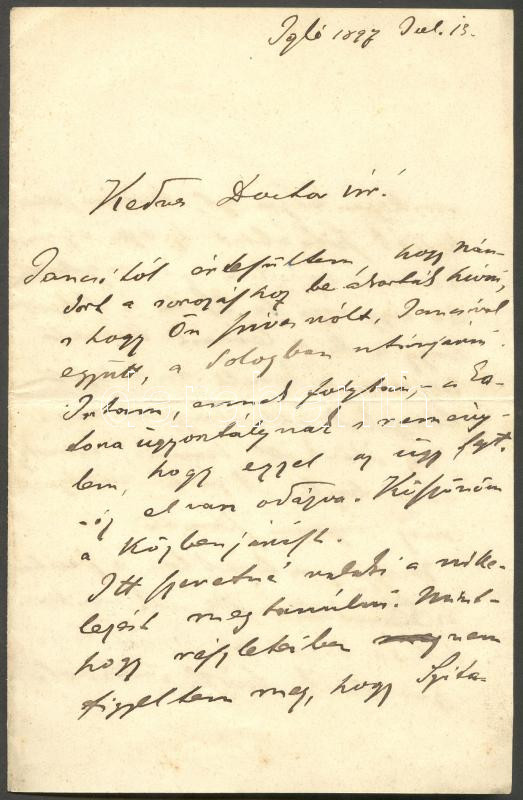 Igló 1897 Jul. 13.
Kedves Doctor úr!
Jancsitól értesültem, hogy Nán-
dort a sorozáshoz be akarták hívni,
s hogy Ön szíves volt, Jancsival
együtt, a dologban utánjárni.
Írtam, ennek folytán, a Ka-
tona ügyosztálynak s remény-
lem, hogy ezzel az ügy
el van odázva. Köszönöm
a közbenjárást.
Itt szeretné valaki a
megtanúlni. Mint-
hogy részleteiben nem
figyeltem meg, hogy